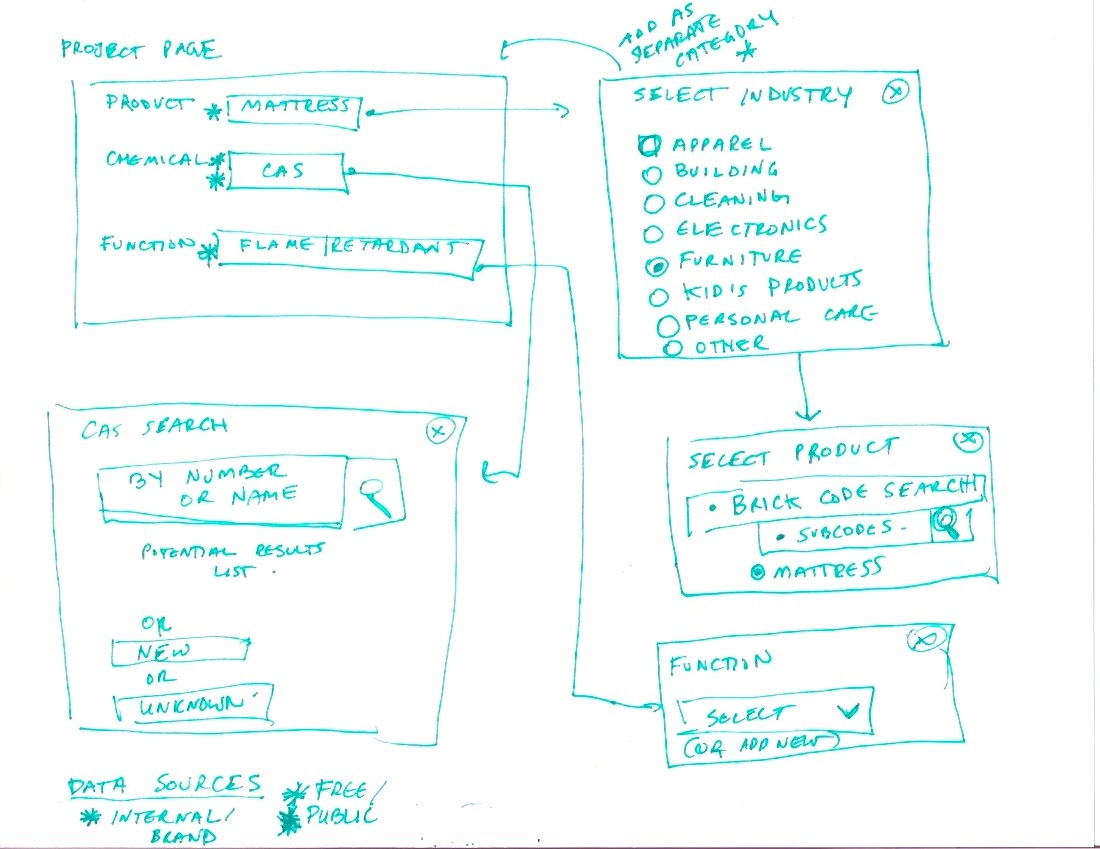 PROJECT PAGE
PRODUCT * MATTRESS
CHEMICAL ** CAS
FUNCTION * FLAME RETARDANT
ADD AS
SEPARATE
CATEGORY
*
SELECT INDUSTRY
APPAREL
BUILDING
CLEANING
ELECTRONICS
FURNITURE
KID'S PRODUCTS
PERSONAL CARE
OTHER
SELECT PRODUCT
• BRICK CODE SEARCH
• SUBCODES
MATTRESS
FUNCTION
SELECT
(OR ADD NEW)
CAS SEARCH
BY NUMBER
OR NAME
POTENTIAL RESULTS
LIST.
OR
NEW
OR
UNKNOWN
DATA SOURCES
* INTERNAL/
BRAND
** FREE/
PUBLIC